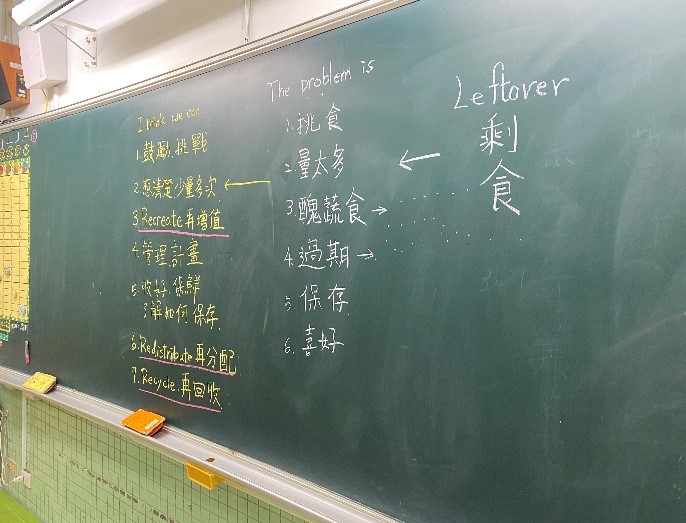 Leftover
剩
食
The problem is
1. 挑食
2. 量太多
←
3. 醜蔬食→
4. 過期→
5. 保存
6. 喜好
I think we can
1. 鼓勵、挑戰
2. 想清楚少量多次←
3. Recreate 再增值
4. 管理計畫
5. 收好、保鮮
了解如何保存
6. Redistribute 再分配
7. Recycle 再回收